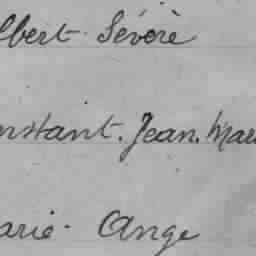 lbert Sévère
nstant. Jean. Mari
arie. Ange